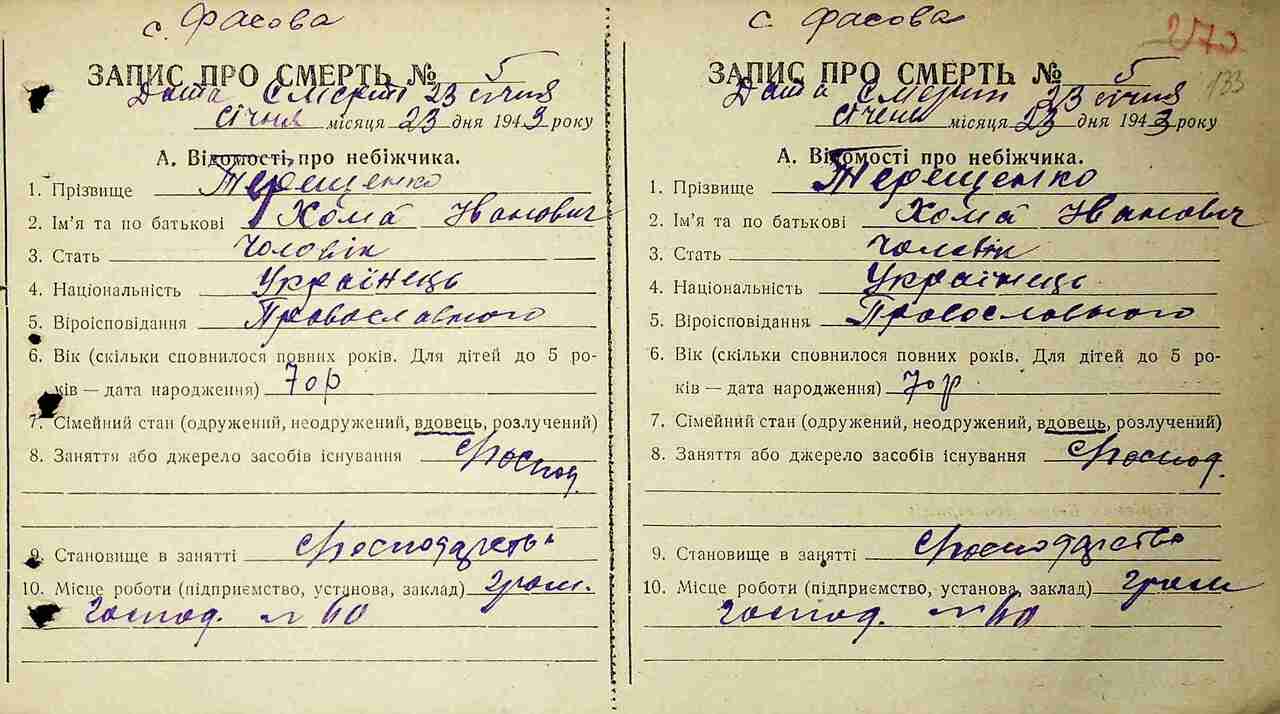 с. Фасова
ЗАПИС ПРО СМЕРТЬ № 5
Дата смерти 23 січня
січня місяця 23 дня 1943 року
А. Відомості про небіжчика.
1. Прізвище Терещенко
2. Ім'я та по батькові Хома Іванович
3. Стать чоловік
4. Національність Українець
5. Віроісповідання Православного
6. Вік (скільки сповнилося повних років. Для дітей до 5 ро-
ків — дата народження) 70 р
7. Сімейний стан (одружений, неодружений, вдовець, розлучений)
8. Заняття або джерело засобів існування господ.
9. Становище в занятті господарства
10. Місце роботи (підприємство, установа, заклад) гром.
господ. № 40
с. Фасова
270
133
ЗАПИС ПРО СМЕРТЬ № 5
Дата смерти 23 січня
січень місяця 23 дня 1943 року
А. Відомості про небіжчика.
1. Прізвище Терещенко
2. Ім'я та по батькові Хома Іванович
3. Стать чоловік
4. Національність Українець
5. Віроісповідання Православного
6. Вік (скільки сповнилося повних років. Для дітей до 5 ро-
ків — дата народження) 70 р
7. Сімейний стан (одружений, неодружений, вдовець, розлучений)
8. Заняття або джерело засобів існування господ.
9. Становище в занятті господарство
10. Місце роботи (підприємство, установа, заклад) гром
господ. № 40